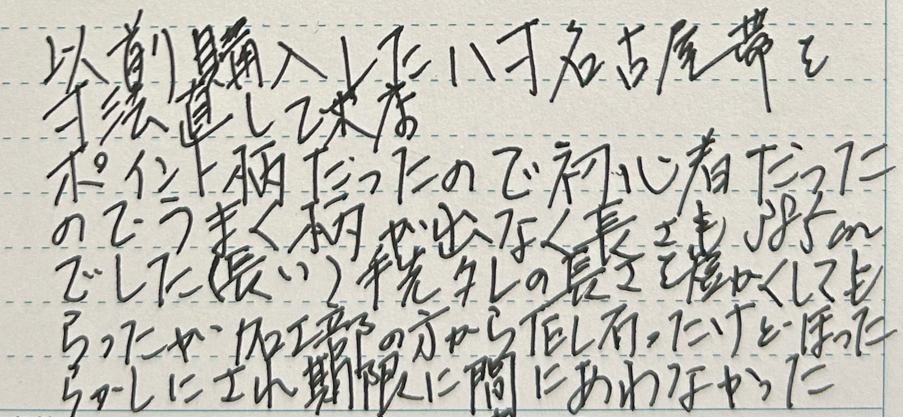 以前購入した八寸名古屋帯を
寸法直しで来店
ポイント柄だったので初心者だった
のでうまく柄が出なく長さも385cm
でした(長い)手先タレの長さを短かくしても
らったが加工部の方から
らかしにされ期限に間にあわなかった